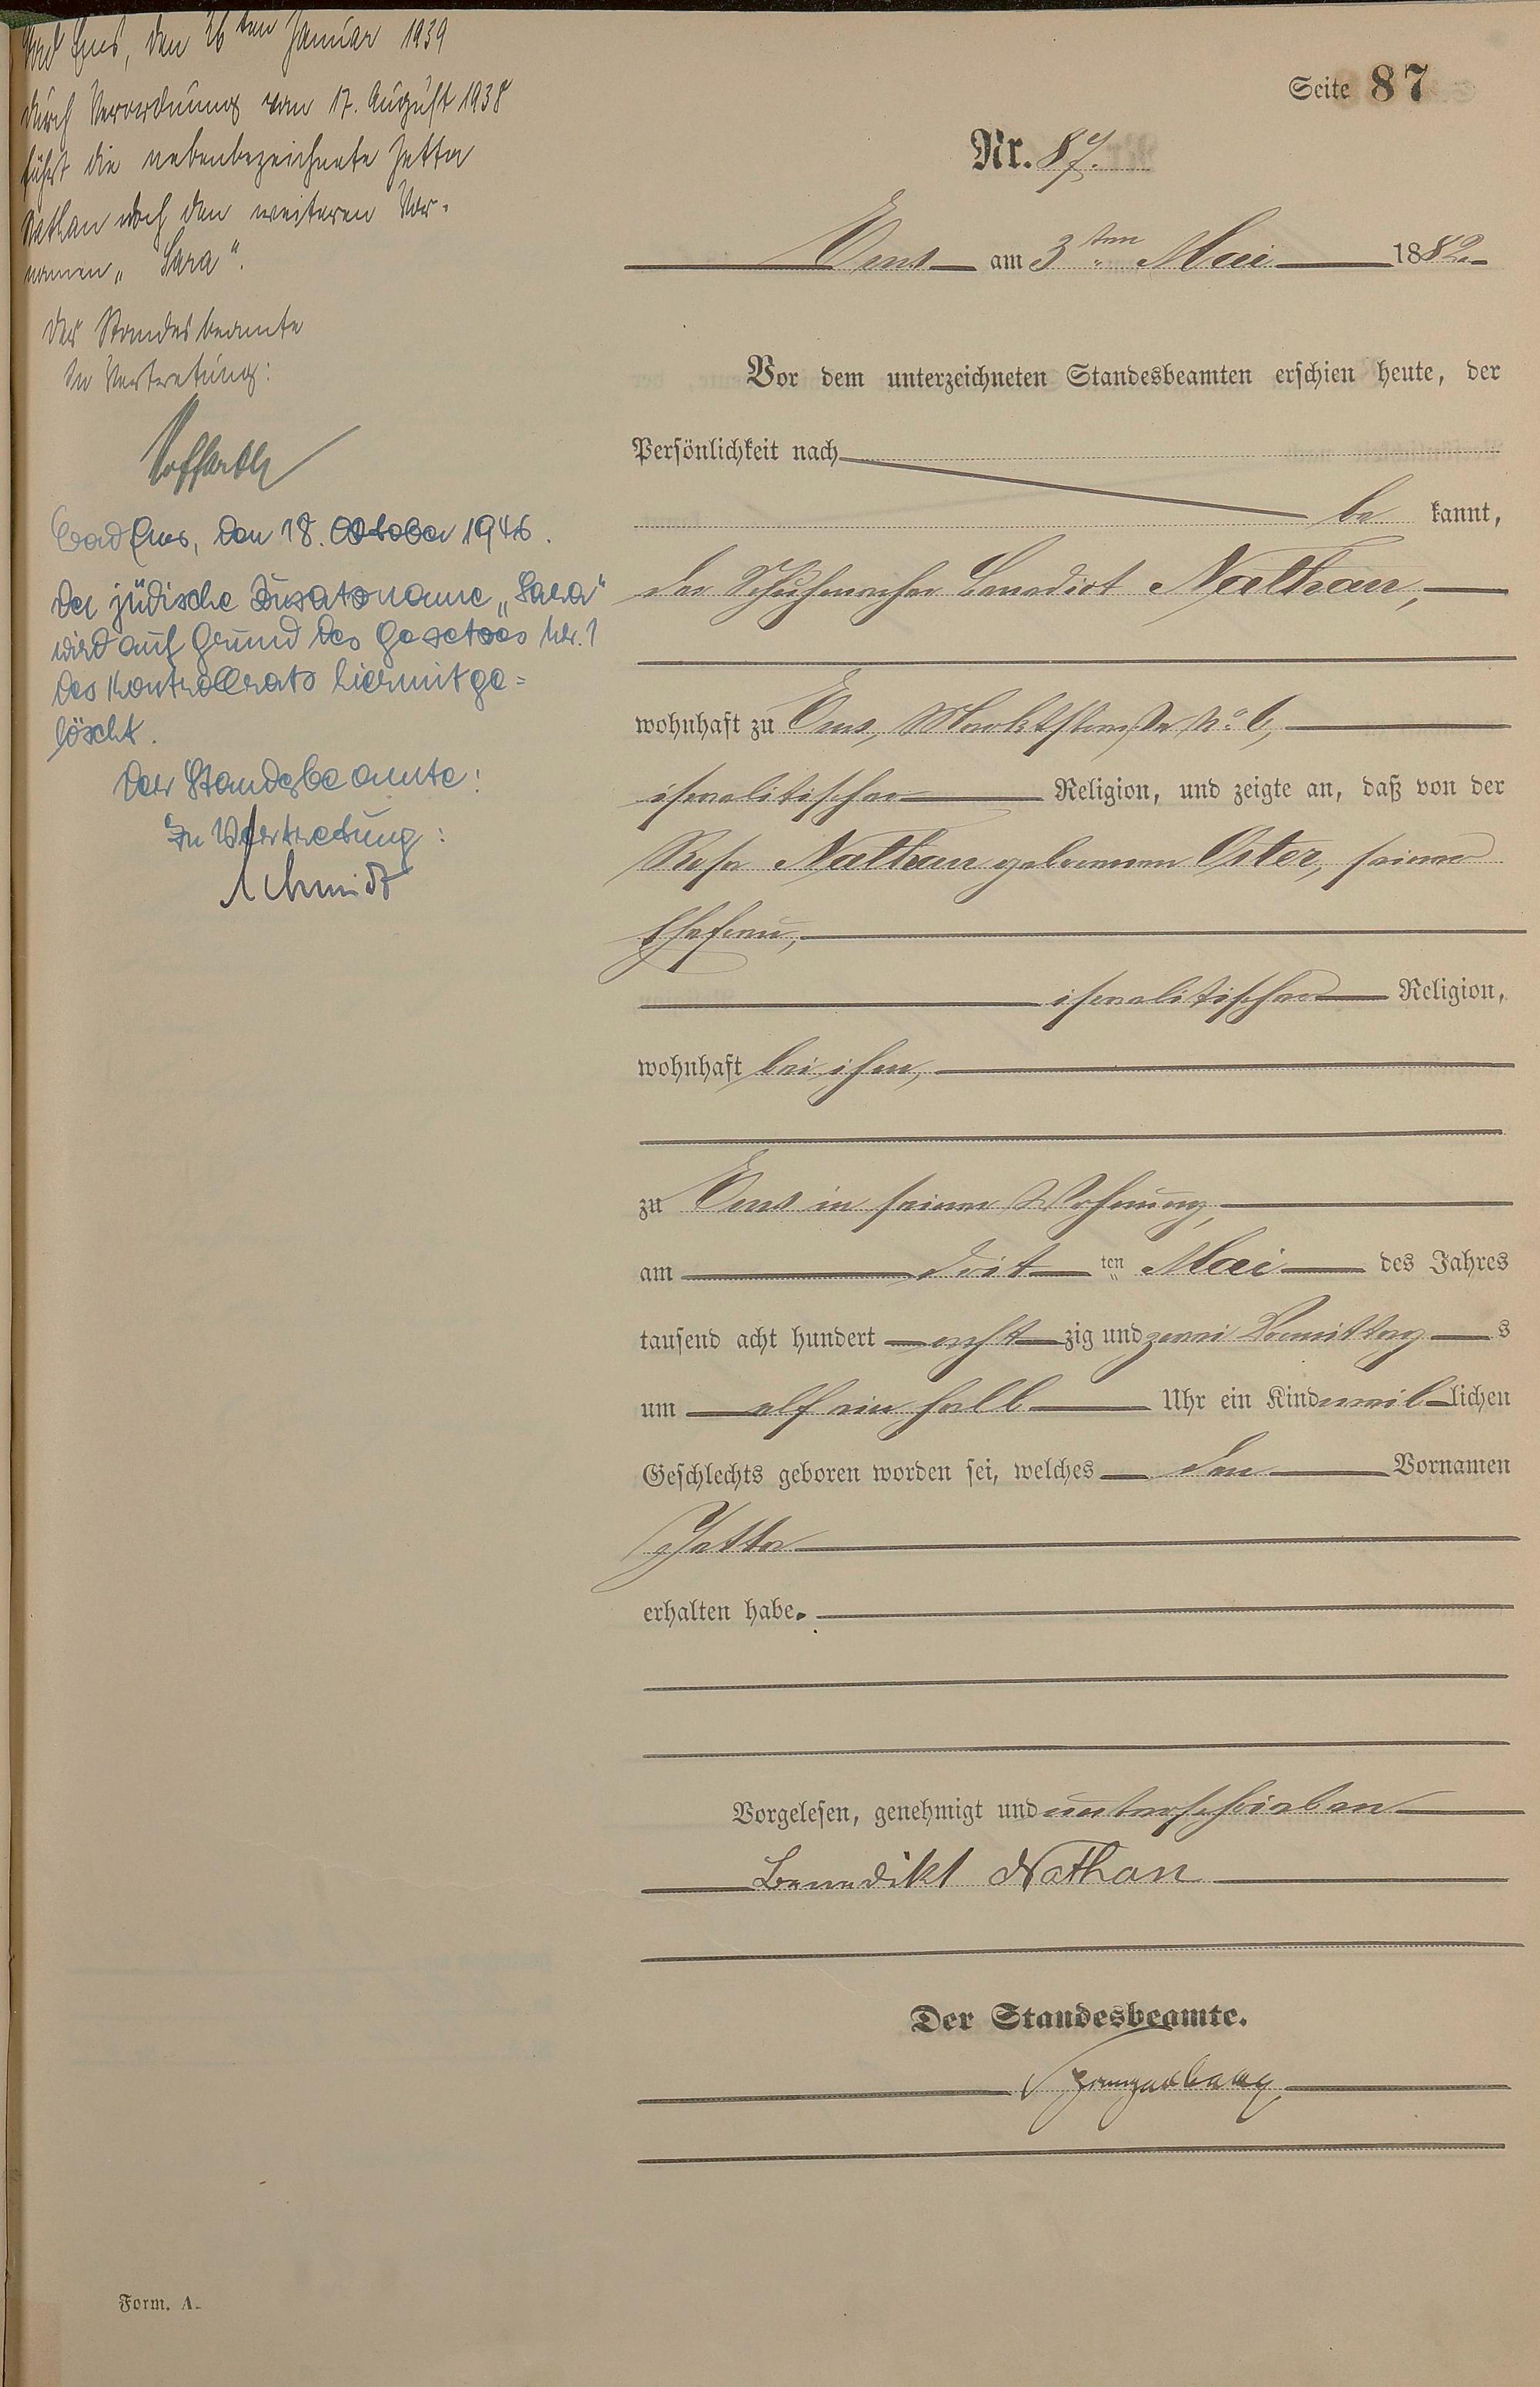 Bad Ems, den 26ten Januar 1939
Durch Verordnung vom 17. August 1938
führt die nebenbezeichnete Jetta
Nathan noch den weiteren Vor-
namen „Sara“.
Der Standesbeamte
In Vertretung:
Bad Ems, den 18. Oktober 1946.
Der jüdische Zusatzname „Sara“
wird auf Grund des Gesetzes Nr. 1
des Kontrollrats hiermit ge=
löscht.
Der Standesbeamte:
In Vertretung:
Schmidt
Seite 87
Nr. 87.
Ems am 3ten Mai 1882.
Vor dem unterzeichneten Standesbeamten erschien heute, der
Persönlichkeit nach
be kannt,
der Schuhmacher Benedict Nathan,
wohnhaft zu Ems, Marktstraße No. 6,
israelitischer Religion, und zeigte an, daß von der
Rosa Nathan geborenen Oster, seiner
Ehefrau,
israelitischer Religion,
wohnhaft bei ihm,
zu Ems in seiner Wohnung,
am drit ten Mai des Jahres
tausend acht hundert acht zig und zwei Vormittag s
um elf ein halb Uhr ein Kind weib lichen
Geschlechts geboren worden sei, welches den Vornamen
Jetta
erhalten habe.
Vorgelesen, genehmigt und unterschrieben
Benedikt Nathan
Der Standesbeamte.
Form. A.